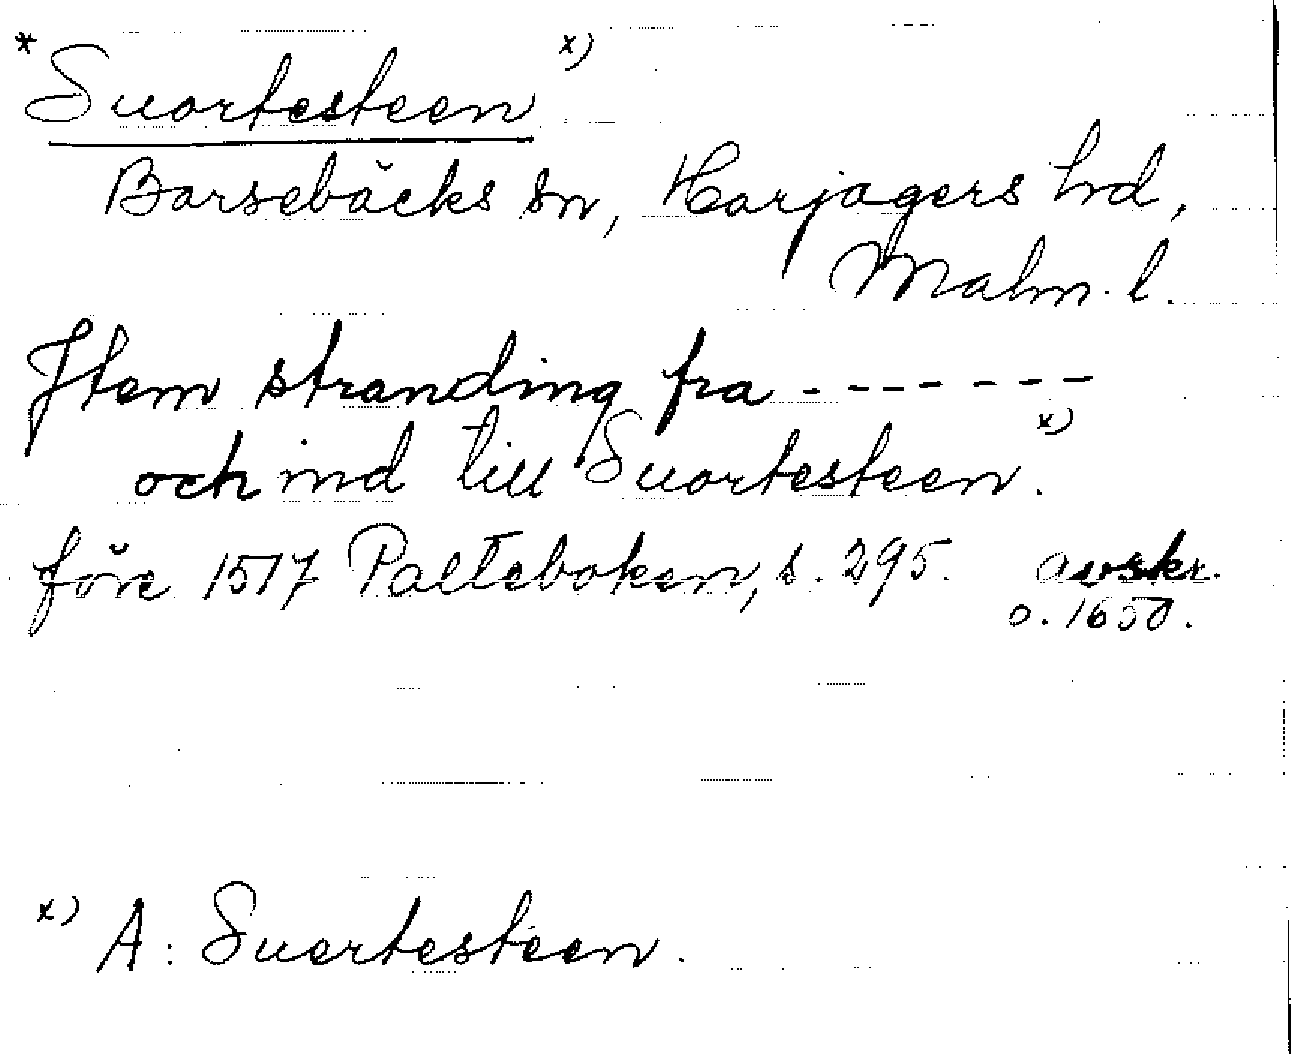 * Suortesteen x)
Barsebäcks sn, Harjagers hrd,
Malm. l.
Item stranding fra - - - - - - -
och ind till Suortesteen. x)
före 1517 Palteboken, s. 295. avskr.
o. 1650.
x) A: Suertesteen.